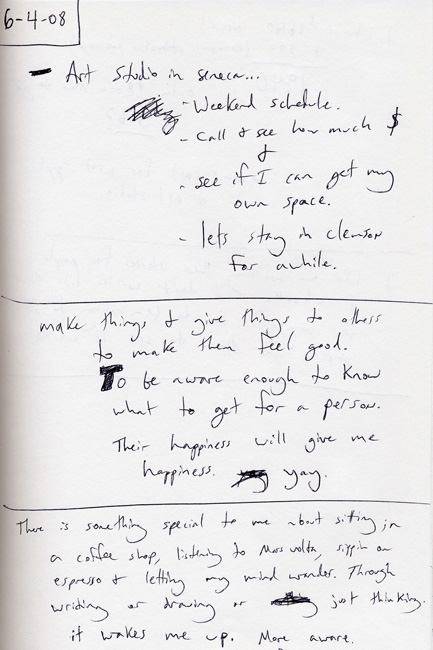 6-4-08
- Art Studio in seneca...
- Weekend schedule.
- Call & see how much $
&
- see if I can get my
own space.
- lets stay in clemson
for awhile.
make things & give things to others
to make them feel good.
To be aware enough to know
what to get for a person.
Their happiness will give me
happiness. yay.
There is something special to me about sitting in
a coffee shop, listening to Mars volta, sippin on
espresso & letting my mind wander. Through
writing or drawing or just thinking.
it wakes me up. More aware.